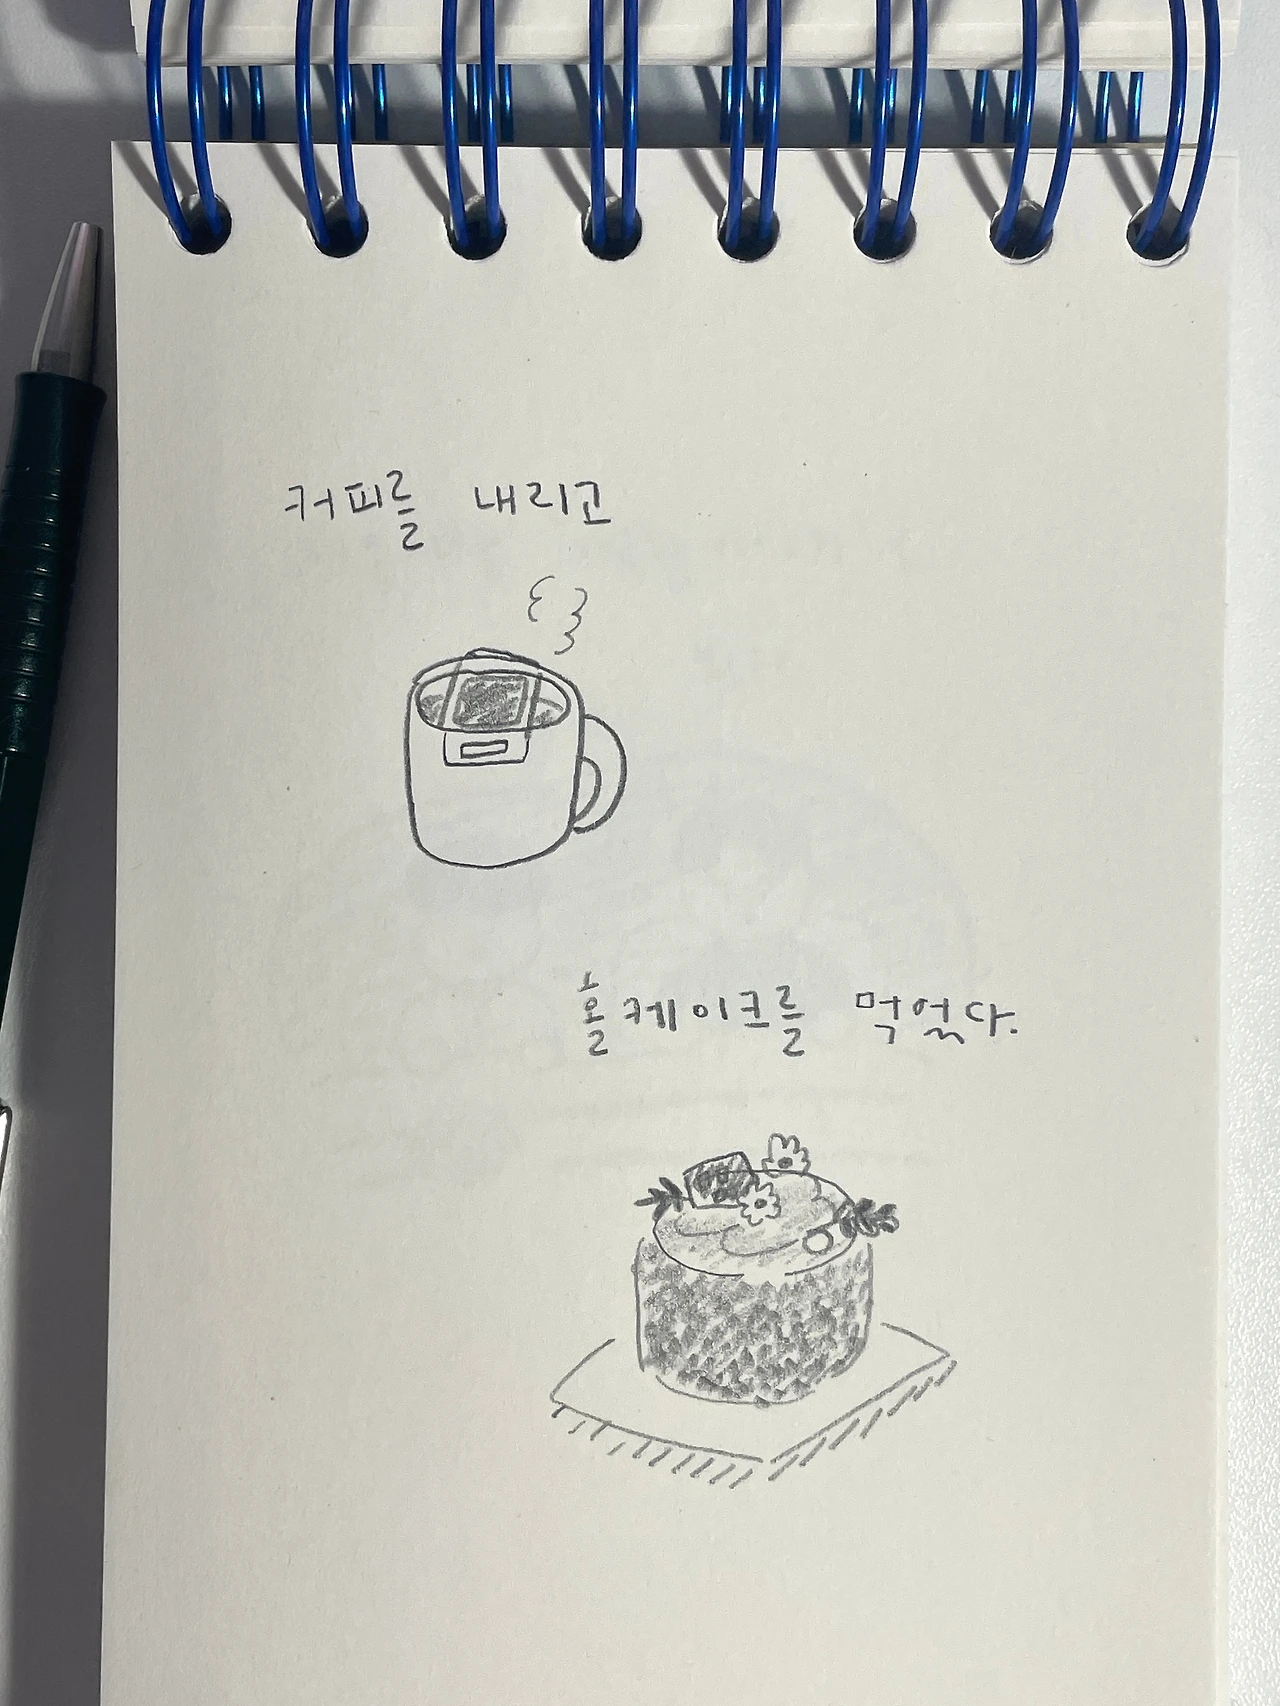 커피를 내리고
홀케이크를 먹었다.